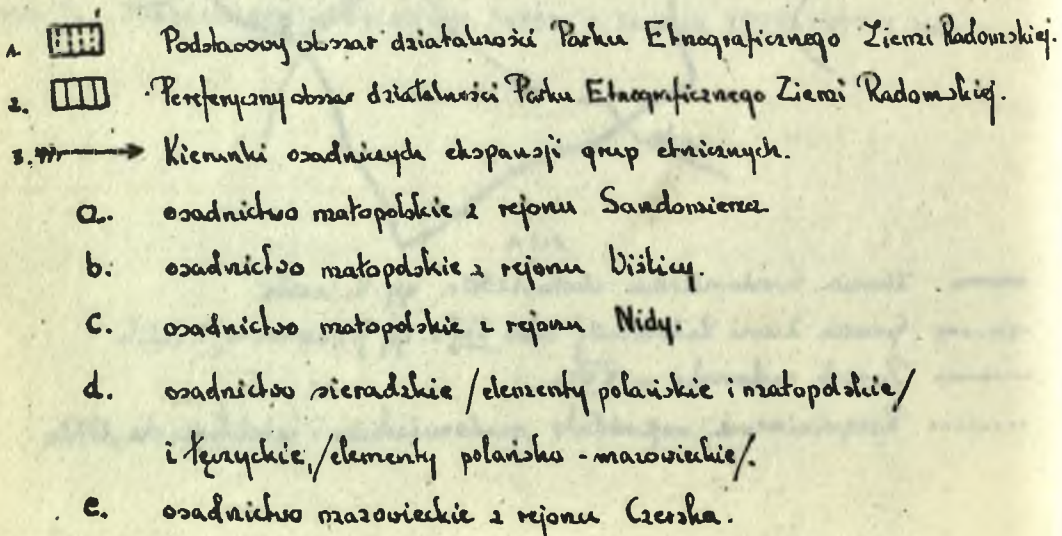 1. Podstawowy obszar działalności Parku Etnograficznego Ziemi Radomskiej.
2. Peryferyczny obszar działalności Parku Etnograficznego Ziemi Radomskiej.
3. Kierunki osadniczych ekspansji grup etnicznych.
a. osadnictwo małopolskie z rejonu Sandomierza
b. osadnictwo małopolskie z rejonu Wiślicy.
c. osadnictwo małopolskie z rejonu Nidy.
d. osadnictwo sieradzkie /elementy polańskie i małopolskie/
i łęczyckie, /elementy polańsko - mazowieckie/.
e. osadnictwo mazowieckie z rejonu Czerska.